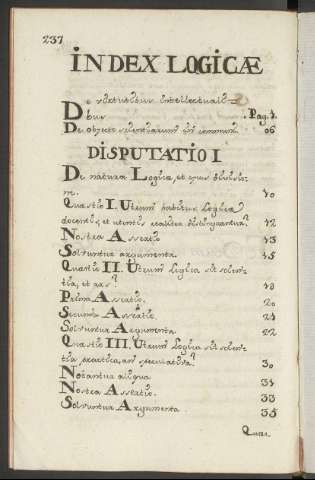 237
INDEX LOGICÆ
De virtutibus intellectuali-
bus . Pag. 4.
De objecto scientiarum in communi. 06
DISPUTATIO I
De natura Logicæ, et ejus divisio-
ne. 10
Quæstio I. Utrum habitus Logicæ
docentis, et utentis realiter distinguantur? 12
Nostra Assertio 13
Solvuntur argumenta. 15
Quæstio II. Utrum Logica sit scien-
tia, et ars? 19
Prima Assertio. 20
Secunda Assertio. 21
Solvuntur Argumenta. 22
Quæstio III. Utrum Logica sit scien-
tia practica, an speculativa? 30
Notantur aliqua 31
Nostra Assertio. 33
Solvuntur Argumenta 35
Quæs.